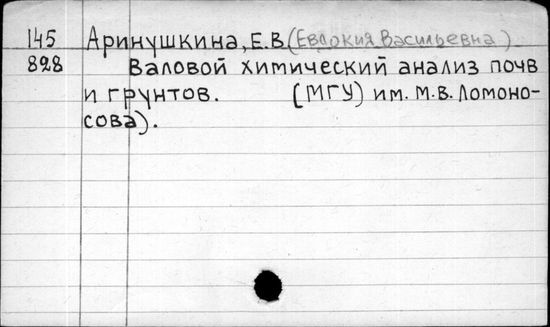 145 Аринушкина, Е.В. (Евдокия Васильевна)
828 Валовой химический анализ почв
и грунтов. (МГУ) им. М.В. Ломоно-
сова).